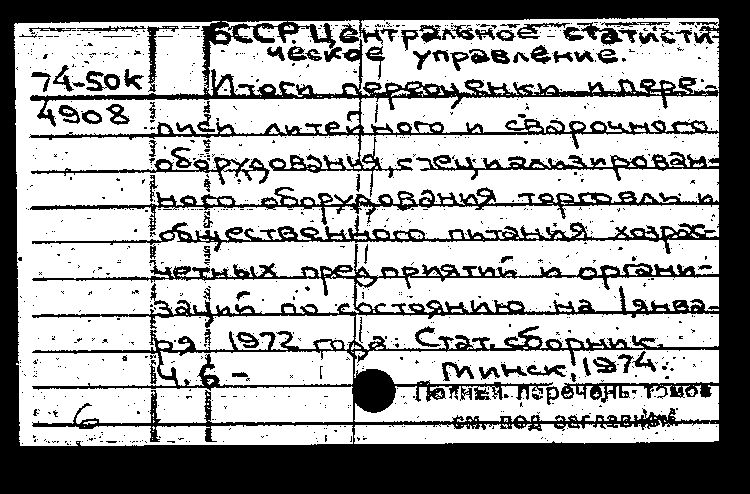 БССР Центральное статисти-
ческое управление.
74-50к
4908
Итоги переоценки и пере-
писи литейного и сварочного
оборудования, специализирован-
ного оборудования торговли и
общественного питания хозрас-
четных предприятий и органи-
заций по состоянию на 1 янва-
ря 1972 года. Стат. сборник.
Ч. 6 -
Минск, 1974.
Полный перечень томов
см. под заглавием
6